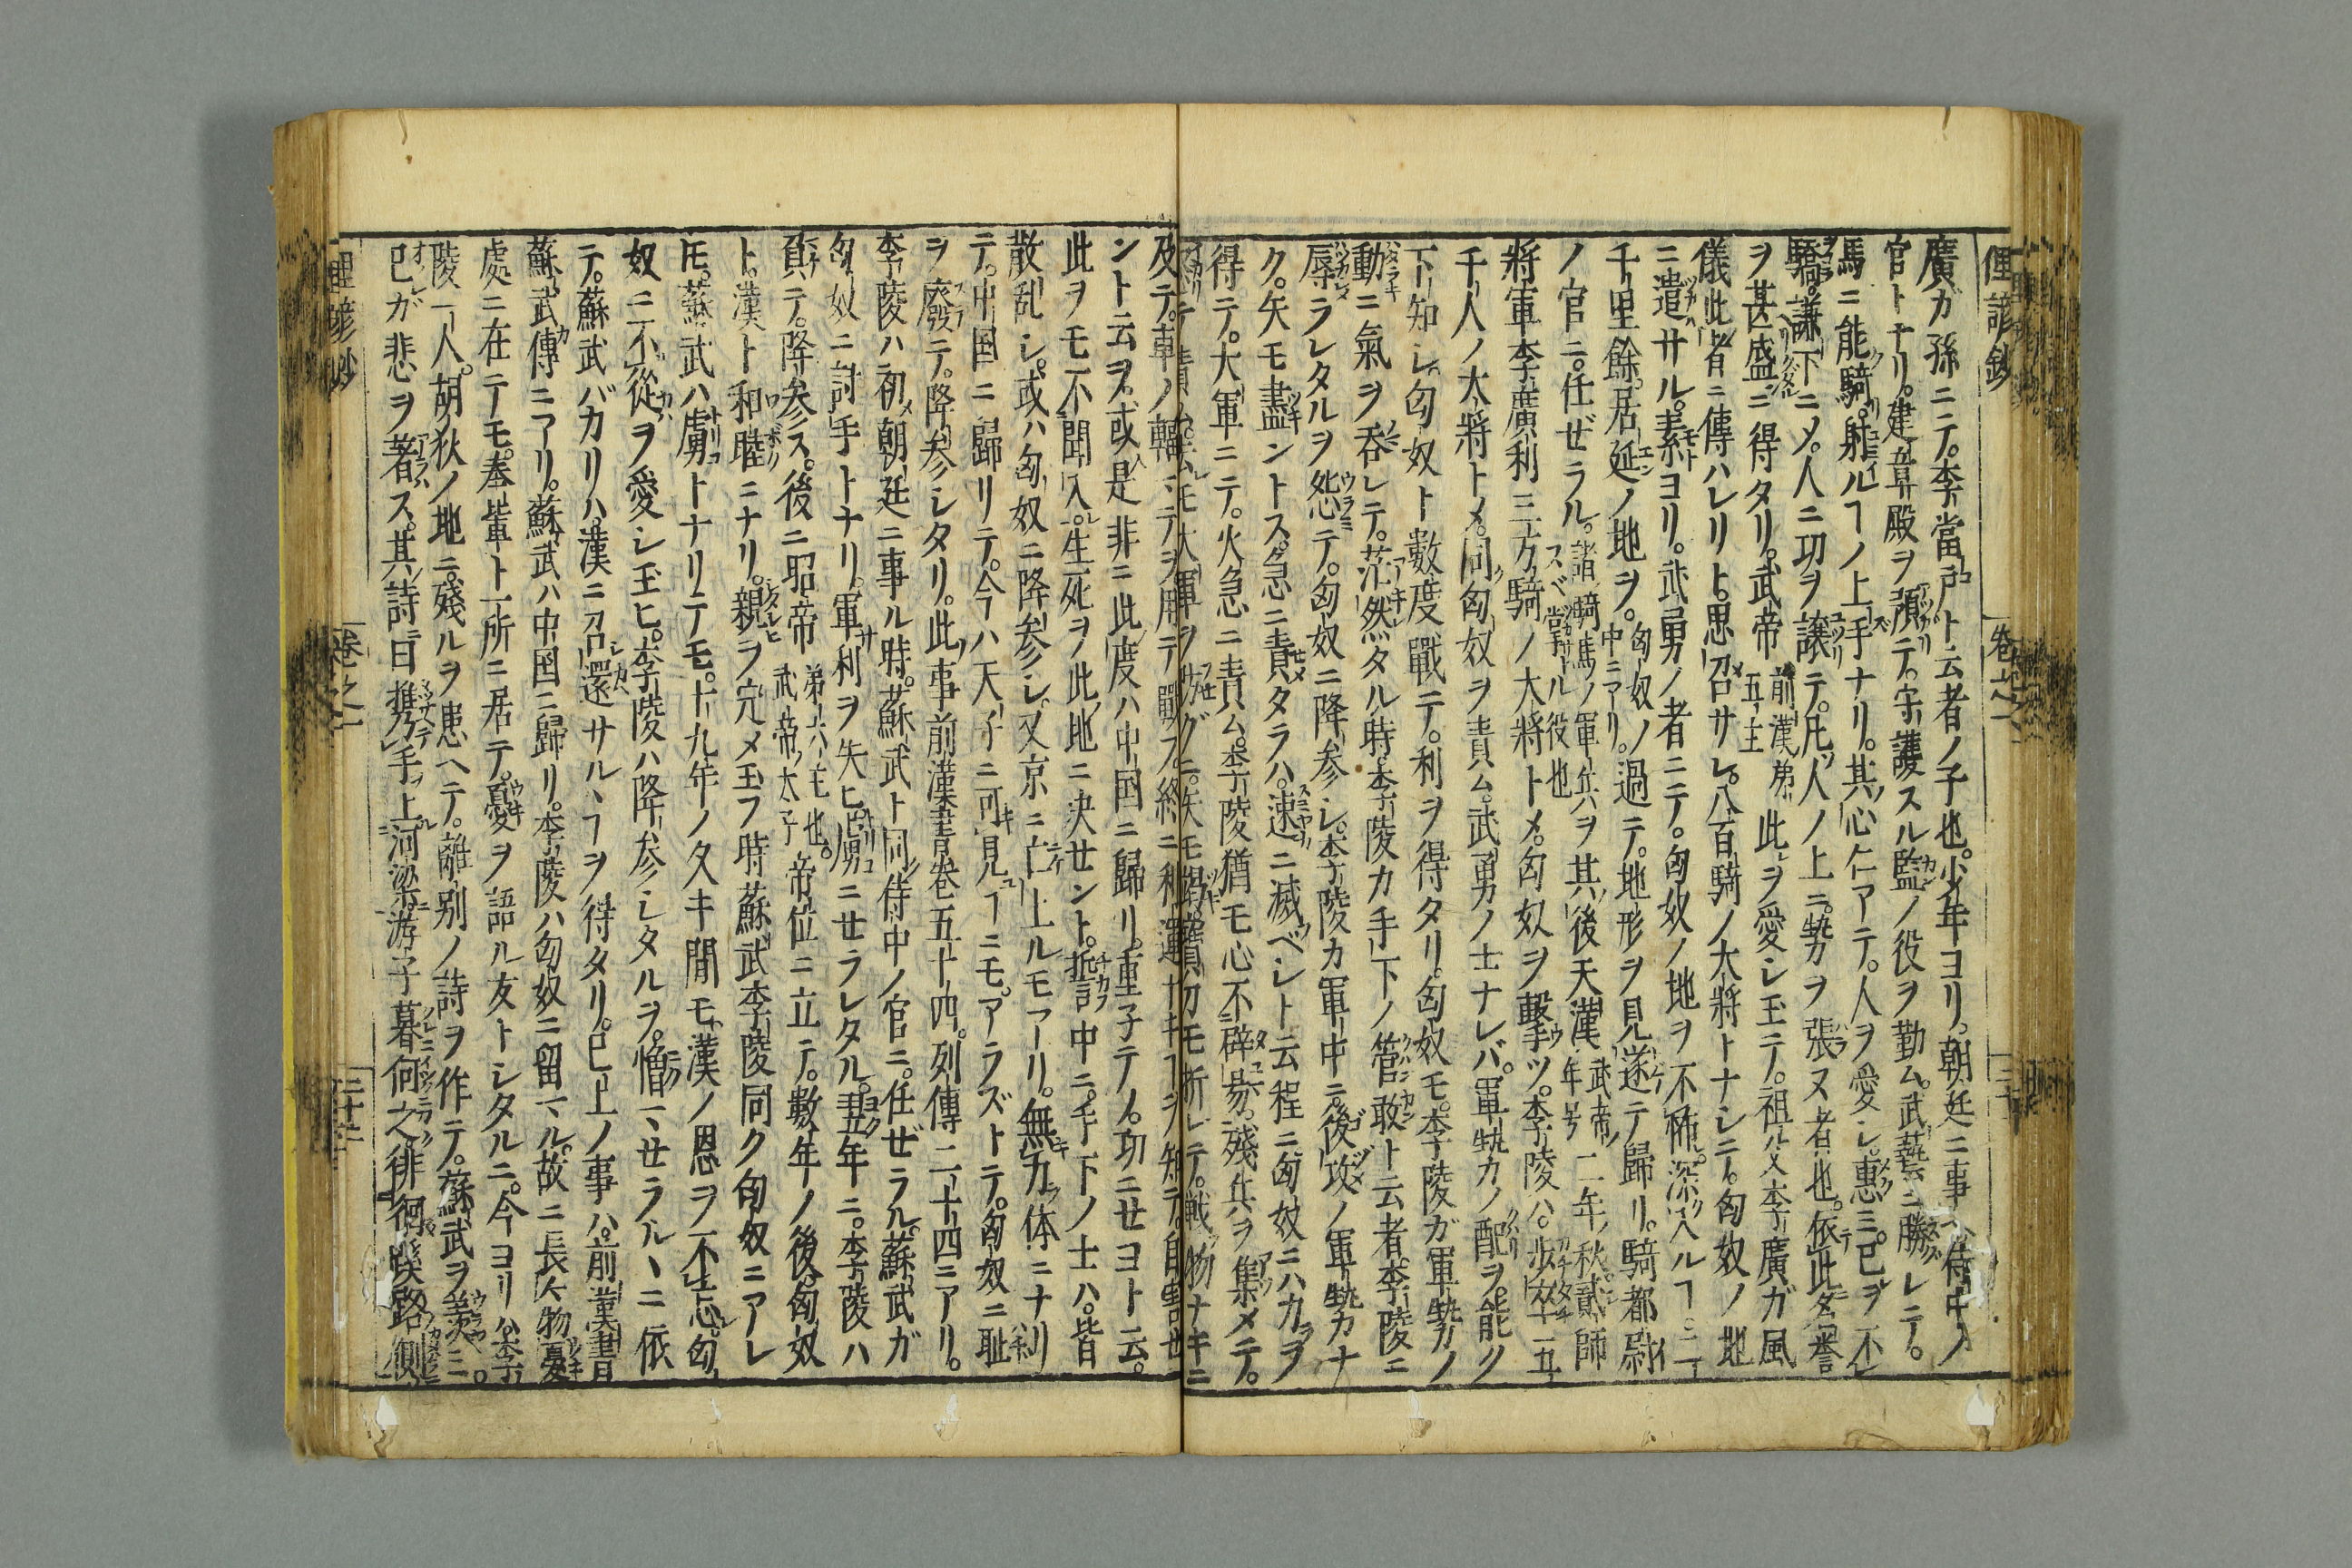 俚諺鈔 卷之一 三十
廣ガ孫ニテ。李當戸ト云者ノ子也。少年ヨリ。朝廷ニ事ヘ。侍中ノ
官トナリ。建章殿ヲ預テ。守護スル監ノ役ヲ勤ム。武藝ニ勝レテ。
馬ニ能騎。射ルヿノ上手ナリ。其心仁アテ。人ヲ愛シ。惠ミ。已ヲ不
驕。謙下ニメ。人ニ功ヲ讓テ。凡人ノ上ニ。勢ヲ張ヌ者也。依此名譽
ヲ甚盛ニ得タリ。武帝前漢第五主此ヲ愛シ玉テ。祖父李廣ガ風
儀此者ニ傳ハレリト。思召サレ。八百騎ノ大將トナシテ。匈奴ノ地
ニ遣サル。素ヨリ。武勇ノ者ニテ。匈奴ノ地ヲ不怖。深入ルヿ二
千里餘。居延ノ地ヲ。匈奴ノ中ニアリ。過テ。地形ヲ見遂テ歸リ。騎都尉
ノ官ニ。任ぜラル。諸騎馬ノ軍兵ヲスベ掌ル役也其後天漢武帝ノ年号二年ノ秋。貳師
將軍李廣利三万騎ノ大將トメ。匈奴ヲ擊ツ。李陵ハ。歩卒五
千人ノ大將トメ。同匈奴ヲ責ム。武勇ノ士ナレバ。軍勢ノ配ヲ。能ク
下知シ。匈奴ト數度戰テ。利ヲ得タリ。匈奴モ。李陵ガ軍勢ノ
動ニ氣ヲ呑レテ。茫然タル時。李陵カ手下ノ管敢ト云者。李陵ニ
辱ラレタルヲ怨テ。匈奴ニ降参シ。李陵カ軍中ニ。後攻ノ軍勢カナ
ク。矢モ盡ントス。急ニ責タラハ。速ニ滅ベシト云程ニ匈奴ニハカヲ
得テ。大軍ニテ。火急ニ責ム。李陵猶モ心不辟易。殘兵ヲ集メテ。
テ責ムレモ大軍ヲ防グニ。矢モ竭鑓刀モ折レテ。戰フ物ナキニ
及テ。車ノ輻ニテヲ用テ戰フ。終ニ利運ナキヿヲ知テ。自害せ
ント云ヲ。或人是非ニ此度ハ中国ニ歸リ。重子テノ。功ニせヨト云。
此ヲモ不聞入。生死ヲ此地ニ決せント。誓中ニ。手下ノ士ハ。皆
散乱シ。或ハ匈奴ニ降参シ。又京ニ亡上ルモアリ。無力体ニナリ
テ。中国ニ歸リテ。今ハ天子ニ可見ヿニモ。アラズトテ。匈奴ニ耻
ヲ廢テ。降参シタリ。此事前漢書卷五十四。列傳二十四ニアリ。
李陵ハ初メ朝廷ニ事ル時。蘇武ト同侍中ノ官ニ。任ぜラル。蘇武ガ
匈奴ニ討手トナリ。軍利ヲ失ヒ。虜ニせラレタル。翌年ニ。李陵ハ
負テ。降参ス。後ニ昭帝武帝ノ太子第六主也。帝位ニ立テ。數年ノ後。匈奴
ト。漢ト和睦ニナリ。親ヲ定メ玉フ時蘇武李陵同ク匈奴ニアレ
𪜈。蘇武ハ虜トナリテモ。十九年ノ久キ間モ。漢ノ恩ヲ不忘。匈
奴ニ不從ヲ愛シ玉ヒ。李陵ハ降参シタルヲ。憎マせラルヽニ依
テ。蘇武バカリハ。漢ニ召還サルヽヿヲ得タリ。已上ノ事ハ。前漢書
蘇武傳ニアリ。蘇武ハ中国ニ歸リ。李陵ハ匈奴ニ留マル。故ニ長ク物憂
處ニ在テモ。奉輩ト一所ニ居テ。憂ヲ語ル友トシタルニ。今ヨリハ李
陵一人。胡狄ノ地ニ。殘ルヲ患ヘテ。離別ノ詩ヲ作テ。蘇武ヲ羨ミ。
已ガ悲ヲ著ス。其詩曰攜手上河梁。游子暮何之。徘徊蹊路側
俚諺鈔 卷之一 三十二